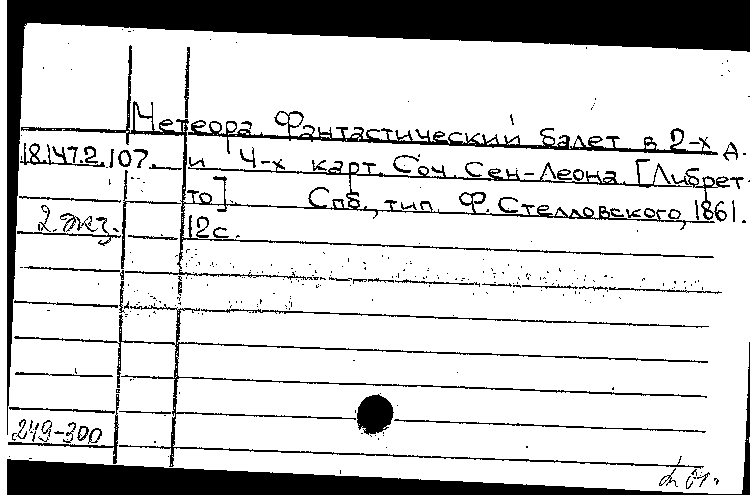 Метеора. Фантастический балет в 2-х д.
18.147.2.107. и 4-х карт. Соч. Сен-Леона. [Либрет-
то]. Спб., тип. Ф. Стелловского, 1861.
2 экз. 12с.
249-300